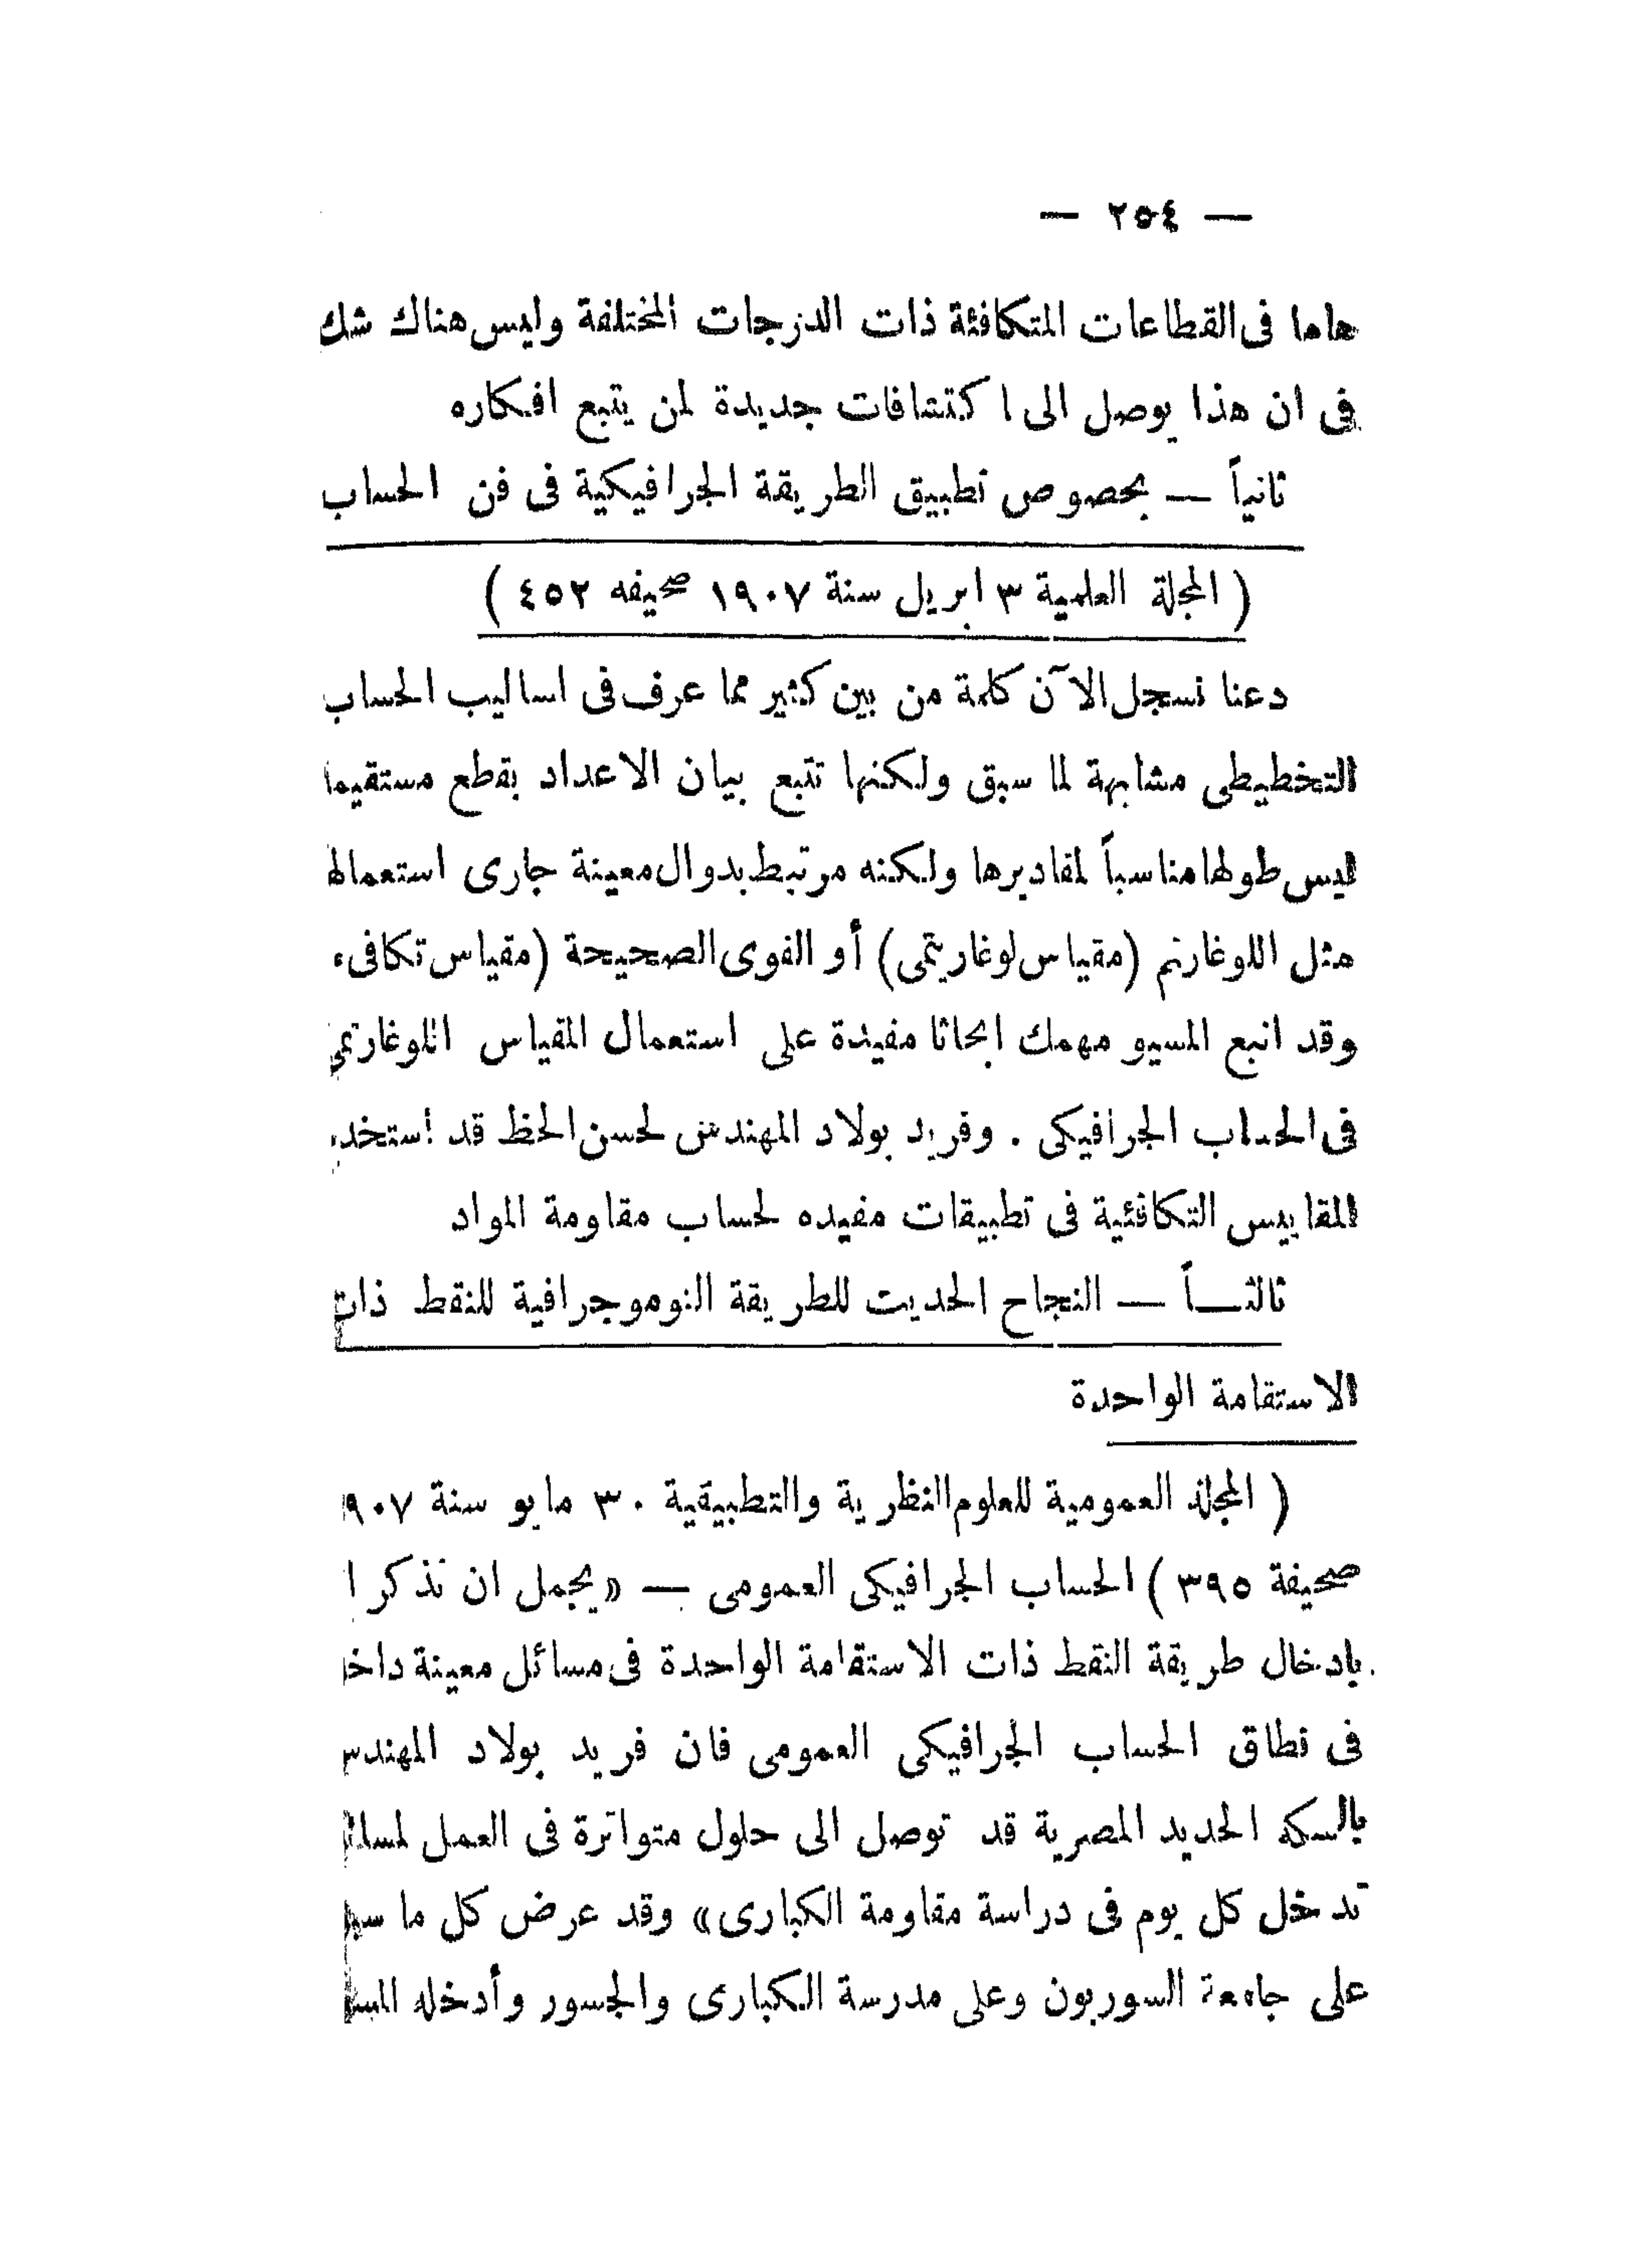 — ٢٥٤ —
هاما فى القطاعات المتكافئة ذات الدرجات المختلفة وليس هناك شك
فى ان هذا يوصل الى ا كتشافات جديدة لمن يتبع افكاره
ثانياً — بخصوص تطبيق الطريقة الجرافيكية فى فن الحساب
( المجلة العلمية ٣ ابريل سنة ١٩٠٧ صحيفه ٤٥٢ )
دعنا نسجل الآن كلمة من بين كثير مما عرف فى اساليب الحساب
التخطيطى مشابهة لما سبق ولكنها تتبع بيان الاعداد بقطع مستقيما
ليس طولها مناسباً لمقاديرها ولكنه مرتبط بدوال معينة جارى استعمالها
مثل اللوغارتم (مقياس لوغاريتمى) أو القوى الصحيحة (مقياس تكافىء
وقد اتبع المسيو مهمك ابحاثا مفيدة على استعمال المقياس اللوغارتمى
فى الحساب الجرافيكى . وفريد بولاد المهندس لحسن الحظ قد استخد
المقاييس التكافئية فى تطبيقات مفيده لحساب مقاومة المواد
ثالثــاً — النجاح الحديث للطريقة النوموجرافية للنقط ذات
الاستقامة الواحدة
( المجلة العمومية للعلوم النظرية والتطبيقية ٣٠ مايو سنة ٩٠٧
صحيفة ٣٩٥ ) الحساب الجرافيكى العمومى — « يجمل ان نذكر ا
بادخال طريقة النقط ذات الاستقامة الواحدة فى مسائل معينة داخ
فى نطاق الحساب الجرافيكى العمومى فان فريد بولاد المهندس
بالسكه الحديد المصرية قد توصل الى حلول متواترة فى العمل لمسائ
تدخل كل يوم فى دراسة مقاومة الكبارى » وقد عرض كل ما سب
على جامعة السوربون وعلى مدرسة الكبارى والجسور وأدخله المس